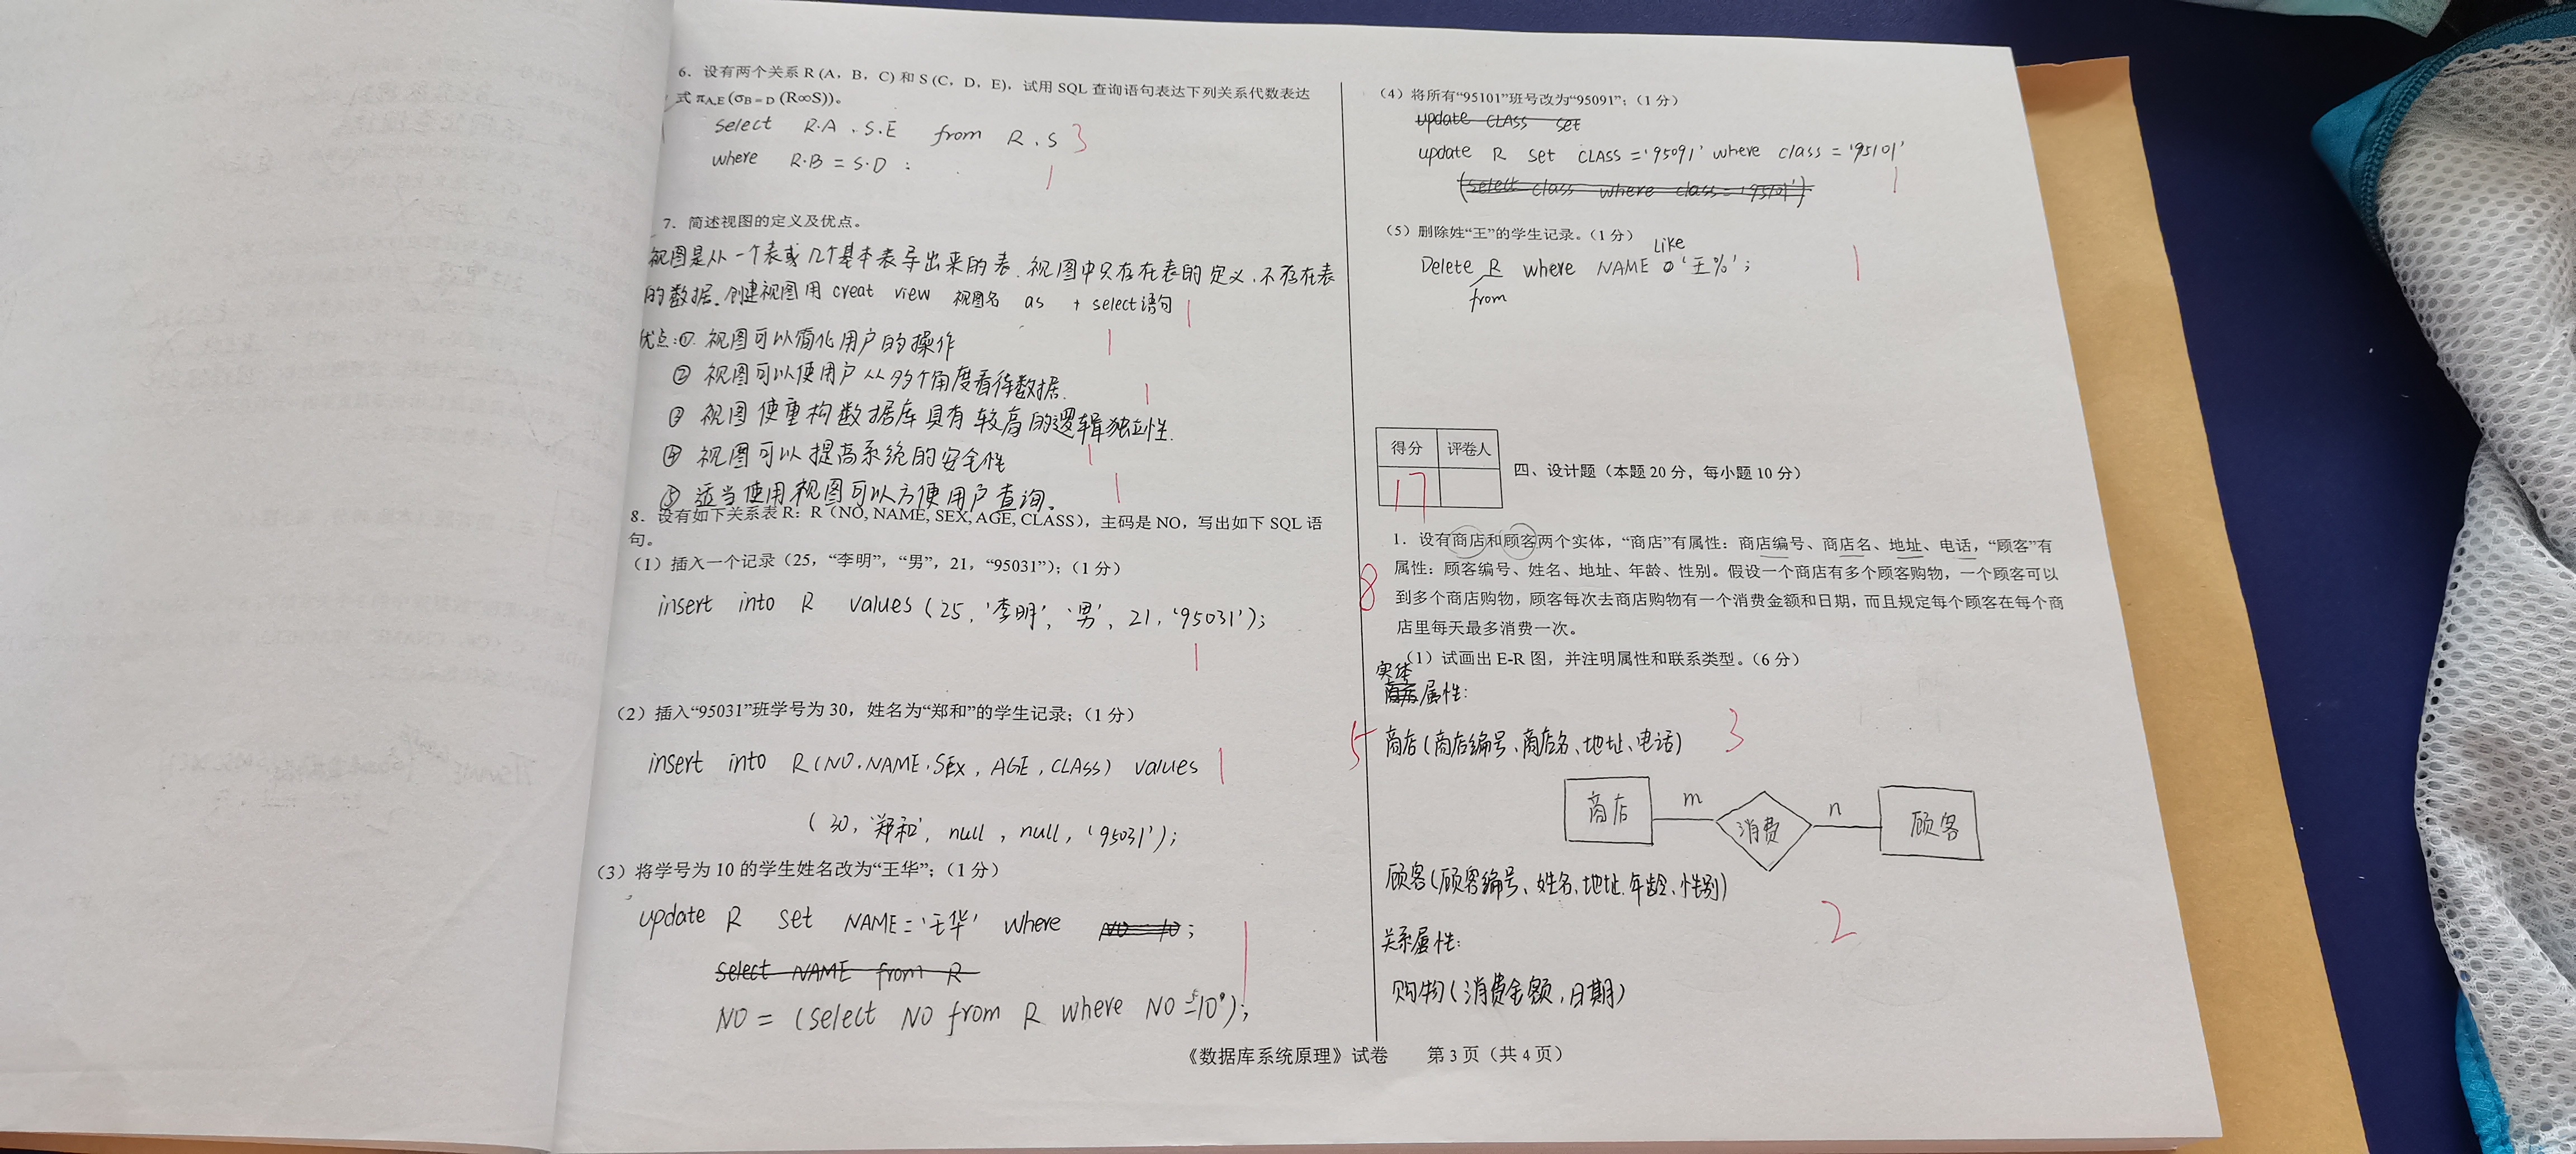 6．设有两个关系 R (A，B，C) 和 S (C，D，E)，试用 SQL 查询语句表达下列关系代数表达
式 πA,E (σB=D (R∞S))。
select R.A , S.E from R , S 3
where R.B = S.D ;
1
7．简述视图的定义及优点。
视图是从一个表或几个基本表导出来的表.视图中只存在表的定义.不存在表
的数据.创建视图用 creat view 视图名 as + select语句 1
优点:① 视图可以简化用户的操作 1
② 视图可以使用户从多个角度看待数据. 1
③ 视图使重构数据库具有较高的逻辑独立性.
④ 视图可以提高系统的安全性 1
⑤ 适当使用视图可以方便用户查询. 1
8．设有如下关系表 R：R（NO, NAME, SEX, AGE, CLASS），主码是 NO，写出如下 SQL 语
句。
（1）插入一个记录（25，“李明”，“男”，21，“95031”）；（1 分）
insert into R values (25, '李明', '男', 21, '95031');
1
（2）插入“95031”班学号为 30，姓名为“郑和”的学生记录；（1 分）
insert into R(NO.NAME.SEX, AGE, CLASS) values 1
(30, '郑和', null, null, '95031');
（3）将学号为 10 的学生姓名改为“王华”；（1 分）
update R set NAME = '王华' where NO = 10 ;
1
select NAME from R
NO = (select NO from R where NO ='10');
（4）将所有“95101”班号改为“95091”；（1 分）
update CLASS set
update R set CLASS ='95091' where class = '95101'
(select class where class='95101') 1
（5）删除姓“王”的学生记录。（1 分）
Like
Delete R where NAME '王%'; 1
from
得分 评卷人
17
四、设计题（本题 20 分，每小题 10 分）
1．设有商店和顾客两个实体，“商店”有属性：商店编号、商店名、地址、电话，“顾客”有
属性：顾客编号、姓名、地址、年龄、性别。假设一个商店有多个顾客购物，一个顾客可以
8
到多个商店购物，顾客每次去商店购物有一个消费金额和日期，而且规定每个顾客在每个商
店里每天最多消费一次。
（1）试画出 E-R 图，并注明属性和联系类型。（6 分）
实体
商店属性:
5 商店(商店编号、商店名、地址、电话) 3
商店 m 消费 n 顾客
顾客(顾客编号、姓名、地址.年龄、性别)
2
关系属性:
购物(消费金额,日期)
《数据库系统原理》试卷 第 3 页（共 4 页）